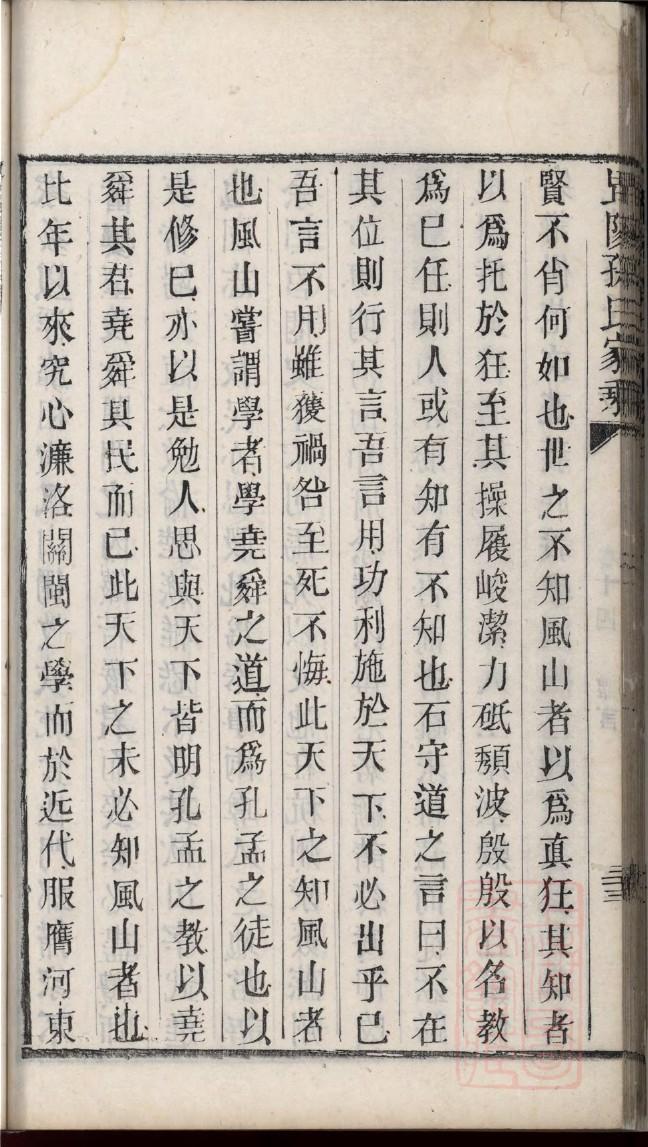 賢不肖何如也世之不知風山者以爲真狂其知者
以爲托於狂至其操履峻潔力砥頽波殷殷以名教
爲已任則人或有知有不知也石守道之言曰不在
其位則行其言吾言用功利施於天下不必出乎己
吾言不用雖獲禍咎至死不悔此天下之知風山者
也風山嘗謂學者學堯舜之道而爲孔孟之徒也以
是修已亦以是勉人思與天下皆明孔孟之教以堯
舜其君堯舜具民而已此天下之未必知風山者也
比年以來究心濂洛關閩之學而於近代服膺河東
孫氏家乘